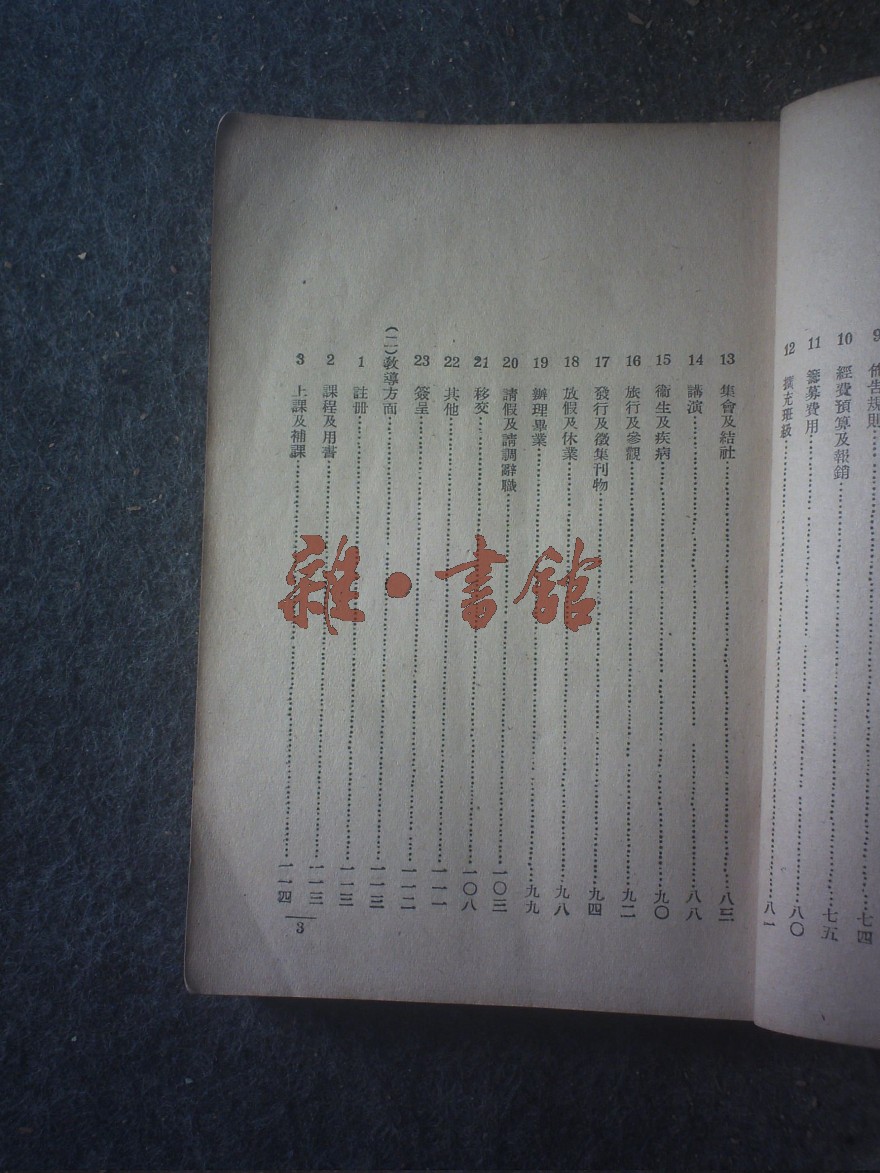 9 佈告規則 七四
10 經費預算及報銷 七五
11 籌募費用 八〇
12 擴充班級 八一
13 集會及結社 八三
14 講演 八八
15 衞生及疾病 九〇
16 旅行及參觀 九二
17 發行及徵集刊物 九四
18 放假及休業 九八
19 辦理畢業 九九
20 請假及請調辭職 一〇三
21 移交 一〇八
22 其他 一一一
23 簽呈 一一二
(二)教導方面 一一三
1 註冊 一一三
2 課程及用書 一一三
3 上課及補課 一一四
3
雜·書館